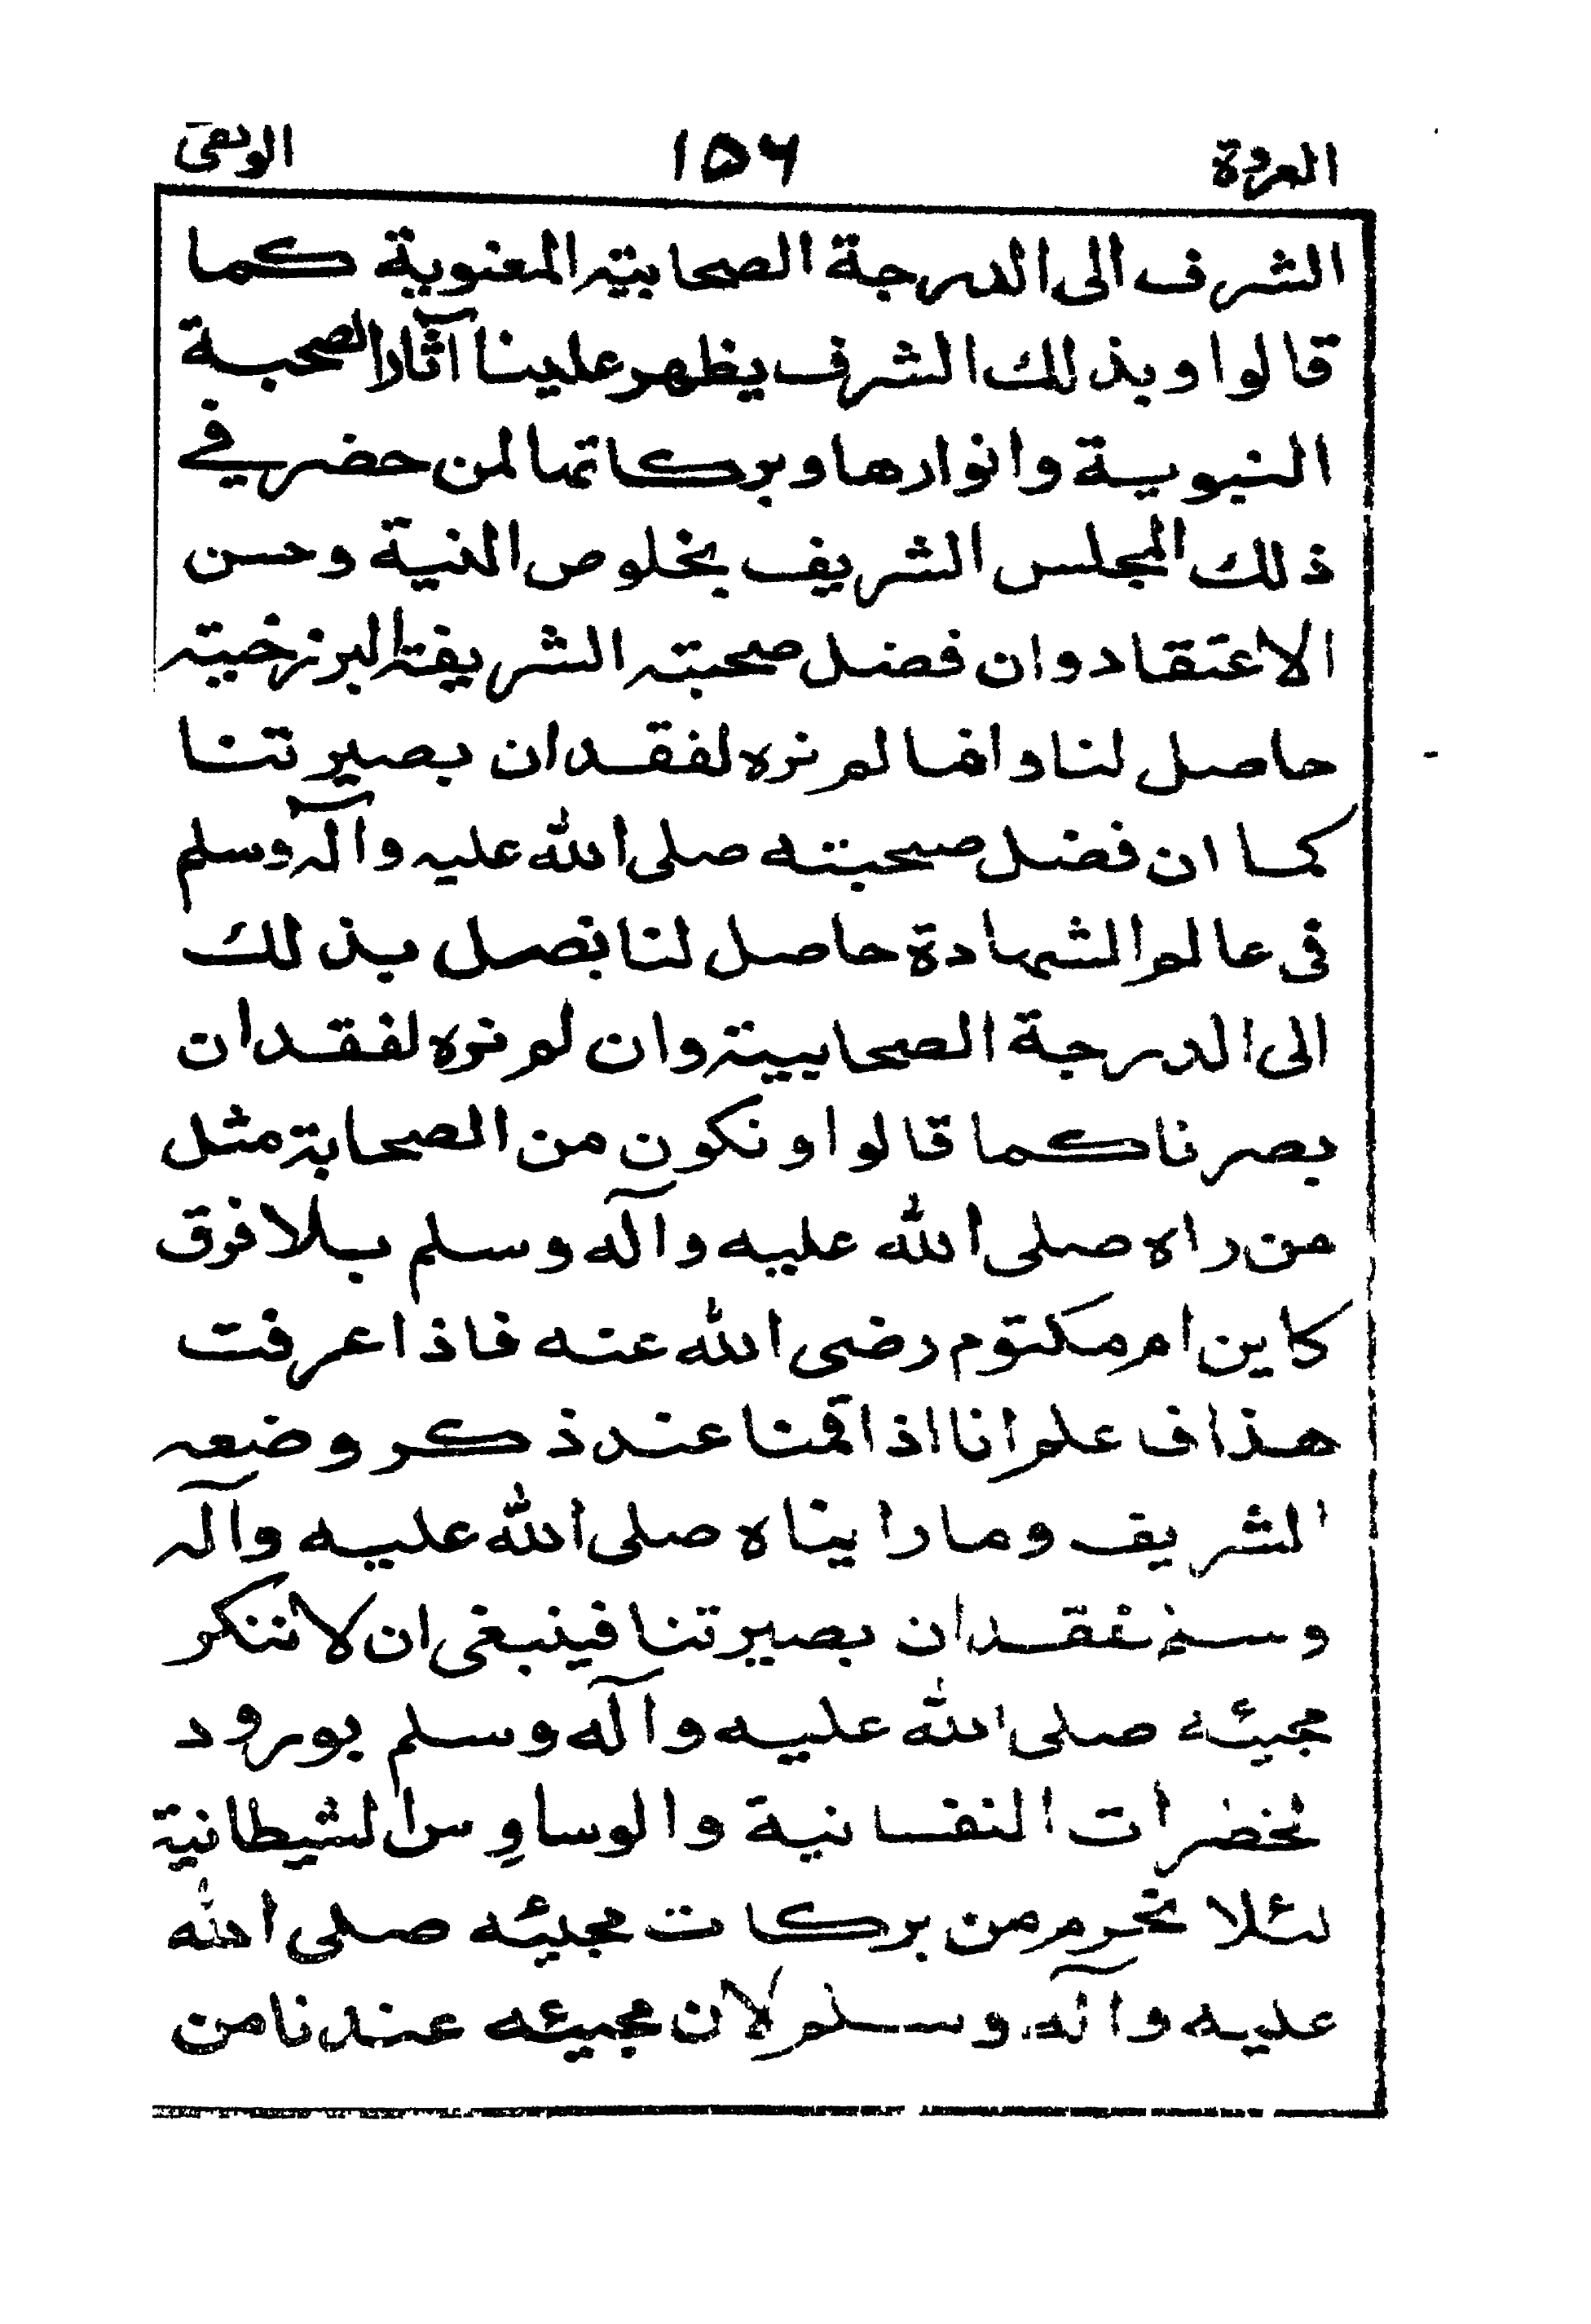 العروة ١٥٦ الوثقى
الشرف الى الدرجة الصحابية المعنوية كما
قالوا وبذلك الشرف يظهر علينا آثار الصحبة
النبوية وانوارها وبركاتها لمن حضر في
ذلك المجلس الشريف بخلوص النية وحسن
الاعتقاد وان فضل صحبته الشريفة البرزخية
حاصل لنا وانما لم نره لفقدان بصيرتنا
كما ان فضل صحبته صلى الله عليه وآله وسلم
فى عالم الشهادة حاصل لنا بفصل بذلك
الى الدرجة الصحابية وان لم نره لفقدان
بصرنا كما قالوا ونكون من الصحابة مثل
من راه صلى الله عليه وآله وسلم بلا فرق
كابن ام مكتوم رضى الله عنه فاذا عرفت
هذا فاعلم انا اذا قمنا عند ذكر وضعه
الشريف وما رايناه صلى الله عليه وآله
وسلم لفقدان بصيرتنا فينبغى ان لا ننكر
مجيئه صلى الله عليه وآله وسلم بورود
الخضرات النفسانية والوساوس الشيطانية
لئلا نحرم من بركات مجيئه صلى الله
عليه وآله وسلم لان مجيئه عندنا من